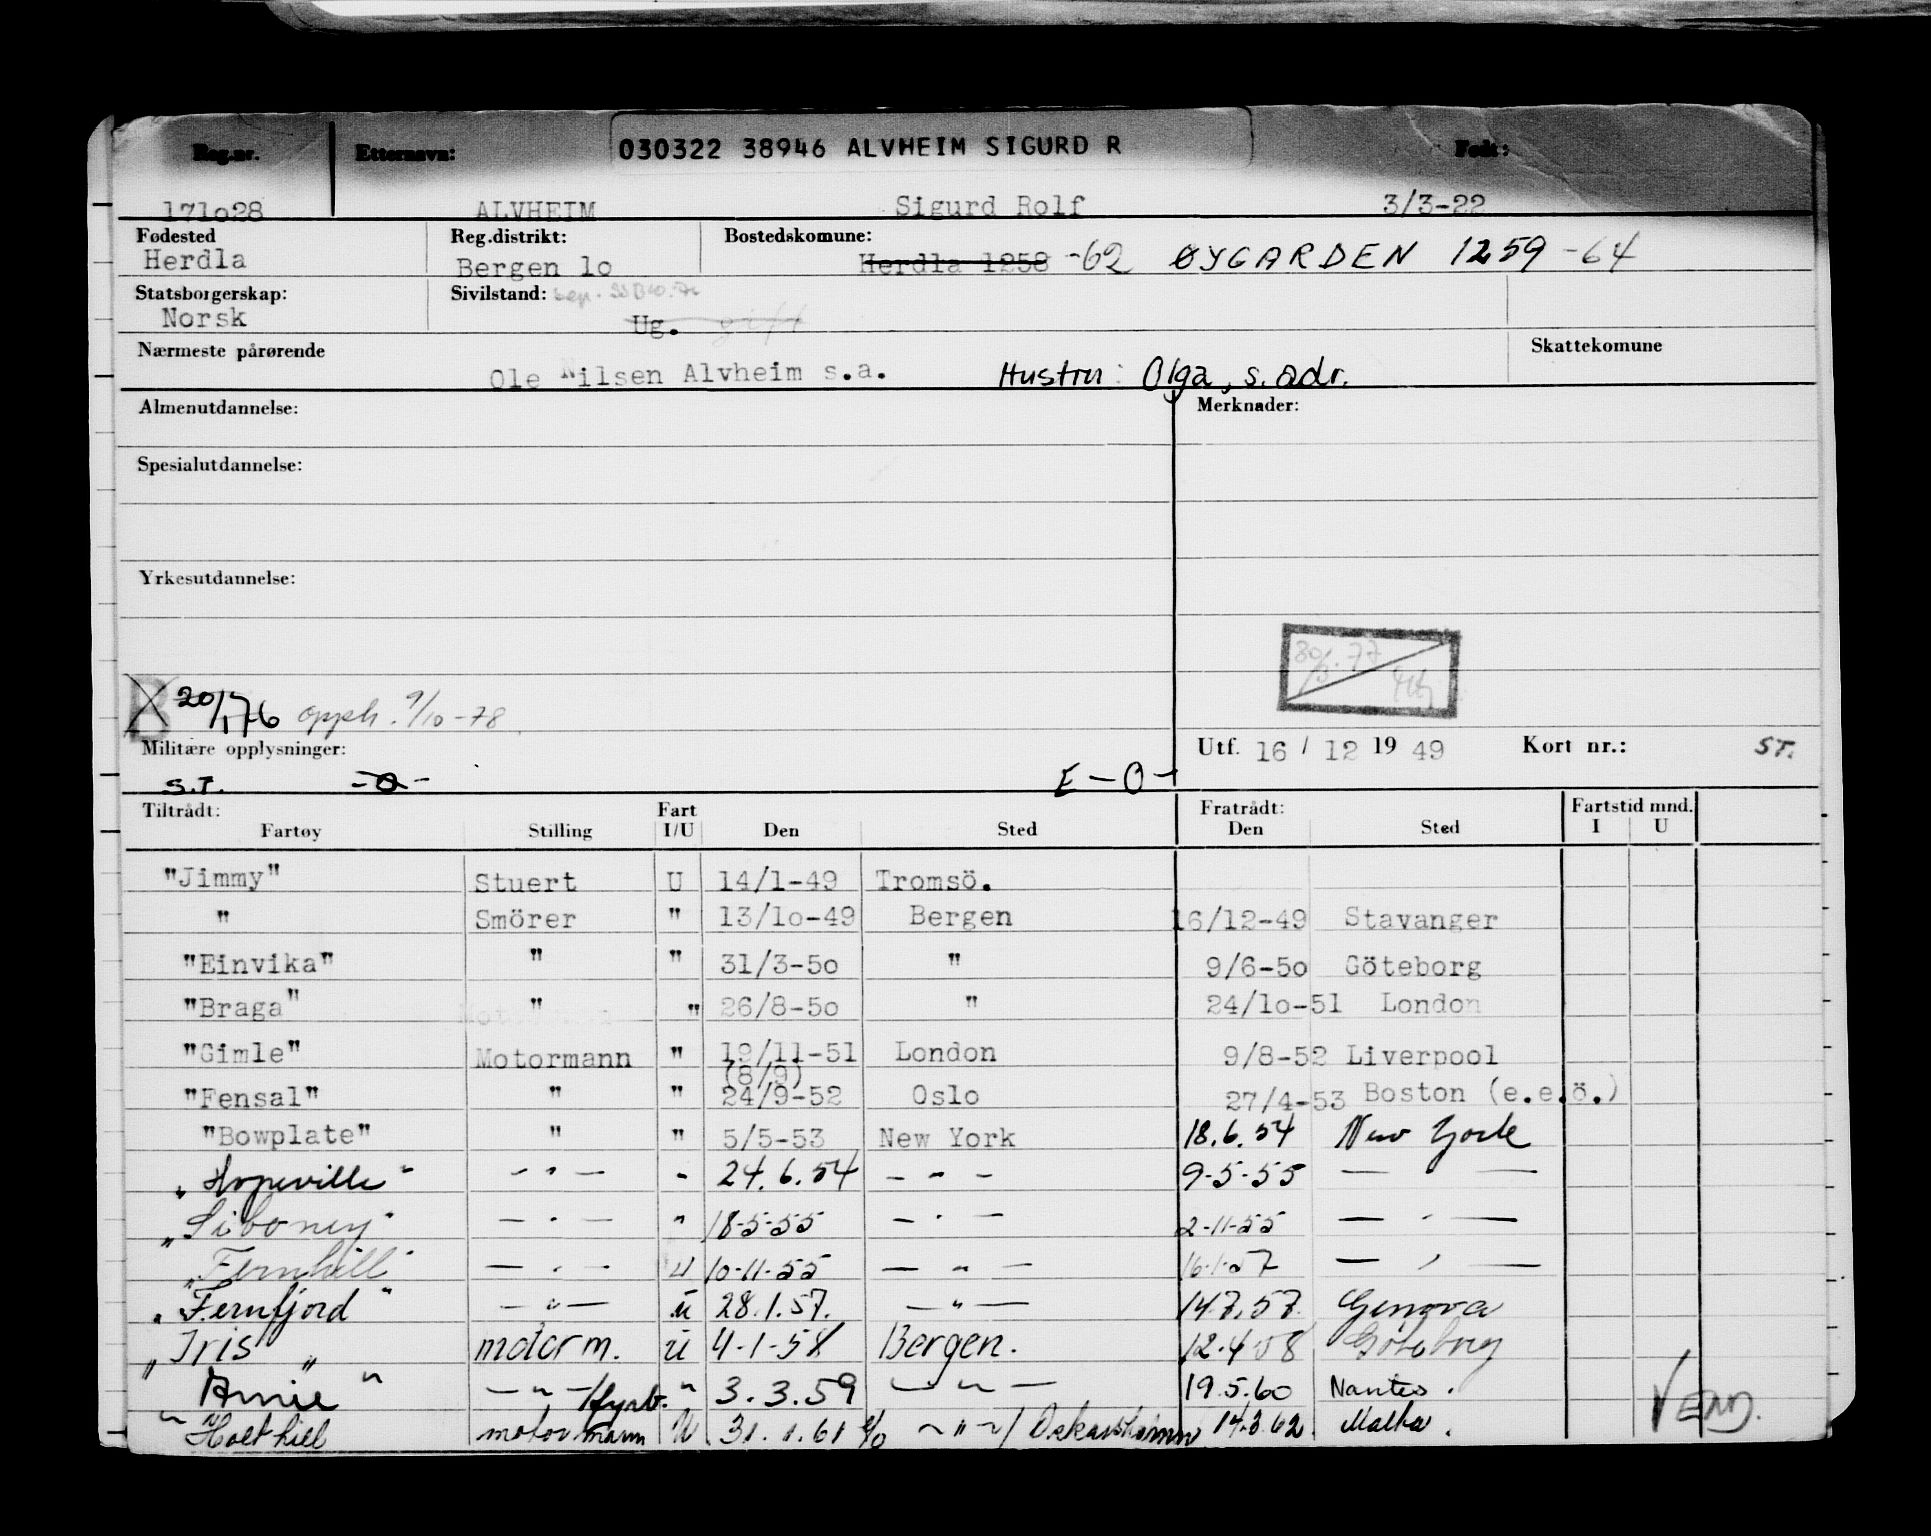 030322 38946 ALVHEIM SIGURD R
Reg.nr. Etternavn: Født:
171o28 ALVHEIM Sigurd Rolf 3/3-22
Fødested Reg.distrikt: Bostedskomune:
Herdla Bergen 1o Herdla 1258 -62 ØYGARDEN 1259 -64
Statsborgerskap: Sivilstand:
Norsk Ug. gift
Nærmeste pårørende Skattekomune
Ole Nilsen Alvheim s.a. Hustru: Olga, s. adr.
Almenutdannelse: Merknader:
Spesialutdannelse:
Yrkesutdannelse:
B 20/1-76 opph. 9/10-78
Militære opplysninger: Utf. 16 / 12 19 49 Kort nr.: ST.
S.T. -O- E-O-
Tiltrådt: Fart Fratrådt: Fartstid mnd.
Fartøy Stilling I/U Den Sted Den Sted I U
"Jimmy" Stuert U 14/1-49 Tromsö.
" Smörer " 13/1o-49 Bergen 16/12-49 Stavanger
"Einvika" " " 31/3-5o " 9/6-5o Göteborg
"Braga" " " 26/8-5o " 24/1o-51 London
"Gimle" Motormann " 19/11-51 London 9/8-52 Liverpool
(8/9)
"Fensal" " " 24/9-52 Oslo 27/4-53 Boston (e.e.ö.)
"Bowplate" " " 5/5-53 New York 18.6.54 New York
"Hopeville" - " - " 24.6.54 - " - 9-5-55 — —
"Siboney" - " - " 18-5-55 - " - 2-11-55 - " -
"Fernhill" - " - U 10-11-55 - " - 16-1-57 - " -
"Fernfjord" - " - u 28.1.57. - " - 14.7.57 Genova
"Iris" motorm. u 4-1-58 Bergen. 12.4.58 Göteborg
"Annie" - " -/fyrb. " 3.3.59 - " - 19.5.60 Nantes.
"Holthill motormann U 31.1.61 - " -/ Oskarshamn 14.3.62. Malta.
VEND.